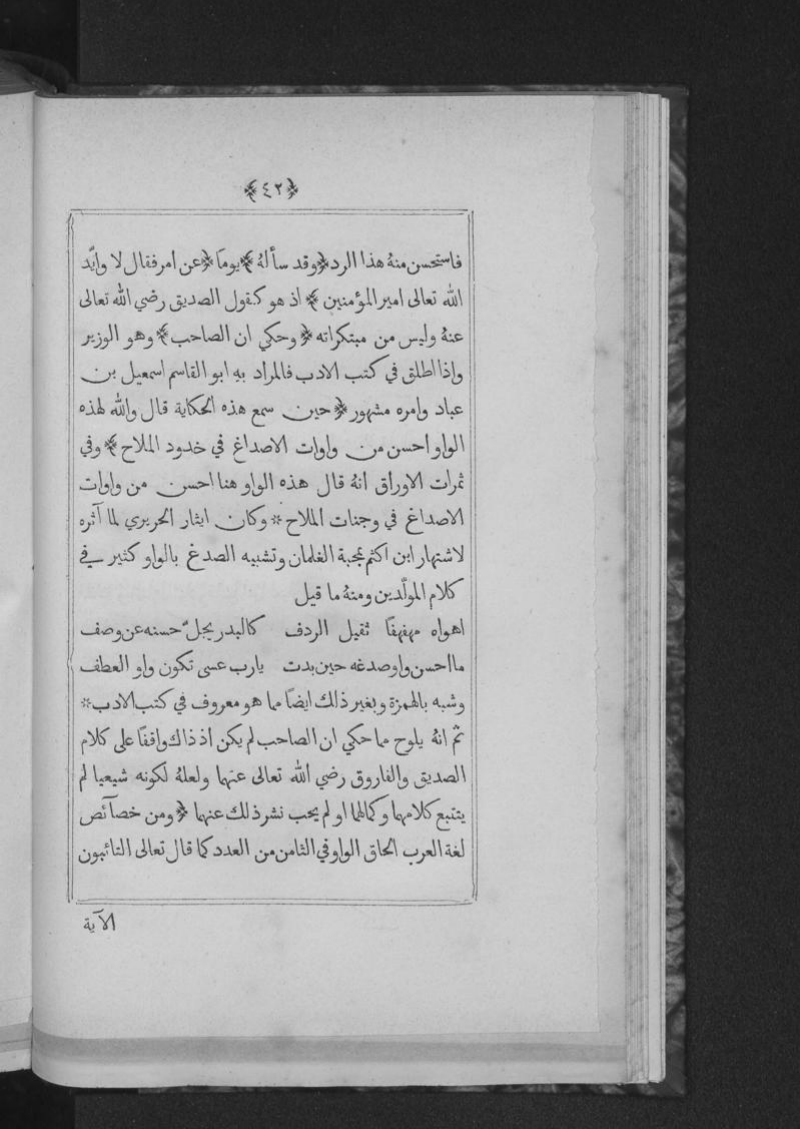 ﴿٤٢﴾
فاستحسن منهُ هذا الرد ﴿وقد سألهُ﴾ يومًا ﴿عن امر فقال لا وايّد
الله تعالى امير المؤمنين﴾ اذ هو كقول الصديق رضي الله تعالى
عنهُ وليس من مبتكراته ﴿وحكي ان الصاحب﴾ وهو الوزير
واذا اطلق في كتب الادب فالمراد بهِ ابو القاسم اسمعيل بن
عباد وامره مشهور ﴿حين سمع هذه الحكاية قال والله لهذه
الواو احسن من واوات الاصداغ في خدود الملاح﴾ وفي
ثمرات الاوراق انهُ قال هذه الواو هنا احسن من واوات
الاصداغ في وجنات الملاح * وكان ايثار الحريري لما آثره
لاشتهار ابن اكثم بمحبة الغلمان وتشبيه الصدغ بالواو كثير في
كلام المولّدين ومنهُ ما قيل
اهواه مهفهفًا ثقيل الردف كالبدر يجلّ حسنه عن وصف
ما احسن واو صدغه حين بدت يا رب عسى تكون واو العطف
وشبه بالهمزة وبغير ذلك ايضًا مما هو معروف في كتب الادب *
ثم انهُ يلوح مما حكي ان الصاحب لم يكن اذ ذاك واقفًا على كلام
الصديق والفاروق رضي الله تعالى عنهما ولعلهُ لكونه شيعيا لم
يتتبع كلامهما وكمالهما او لم يحب نشر ذلك عنهما ﴿ومن خصآئص
لغة العرب الحاق الواو في الثامن من العدد كما قال تعالى التائبون
الآية